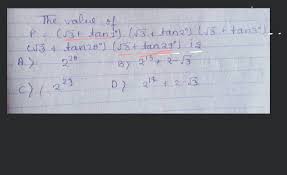 The value of
P = (√3 + tan1°) (√3 + tan2°) (√3 + tan3°) ...
(√3 + tan28°) (√3 + tan29°) is
A.) 2²⁸ B) 2¹⁵ + 2-√3
C) 2²⁹ D) 2¹⁴ + 2-√3